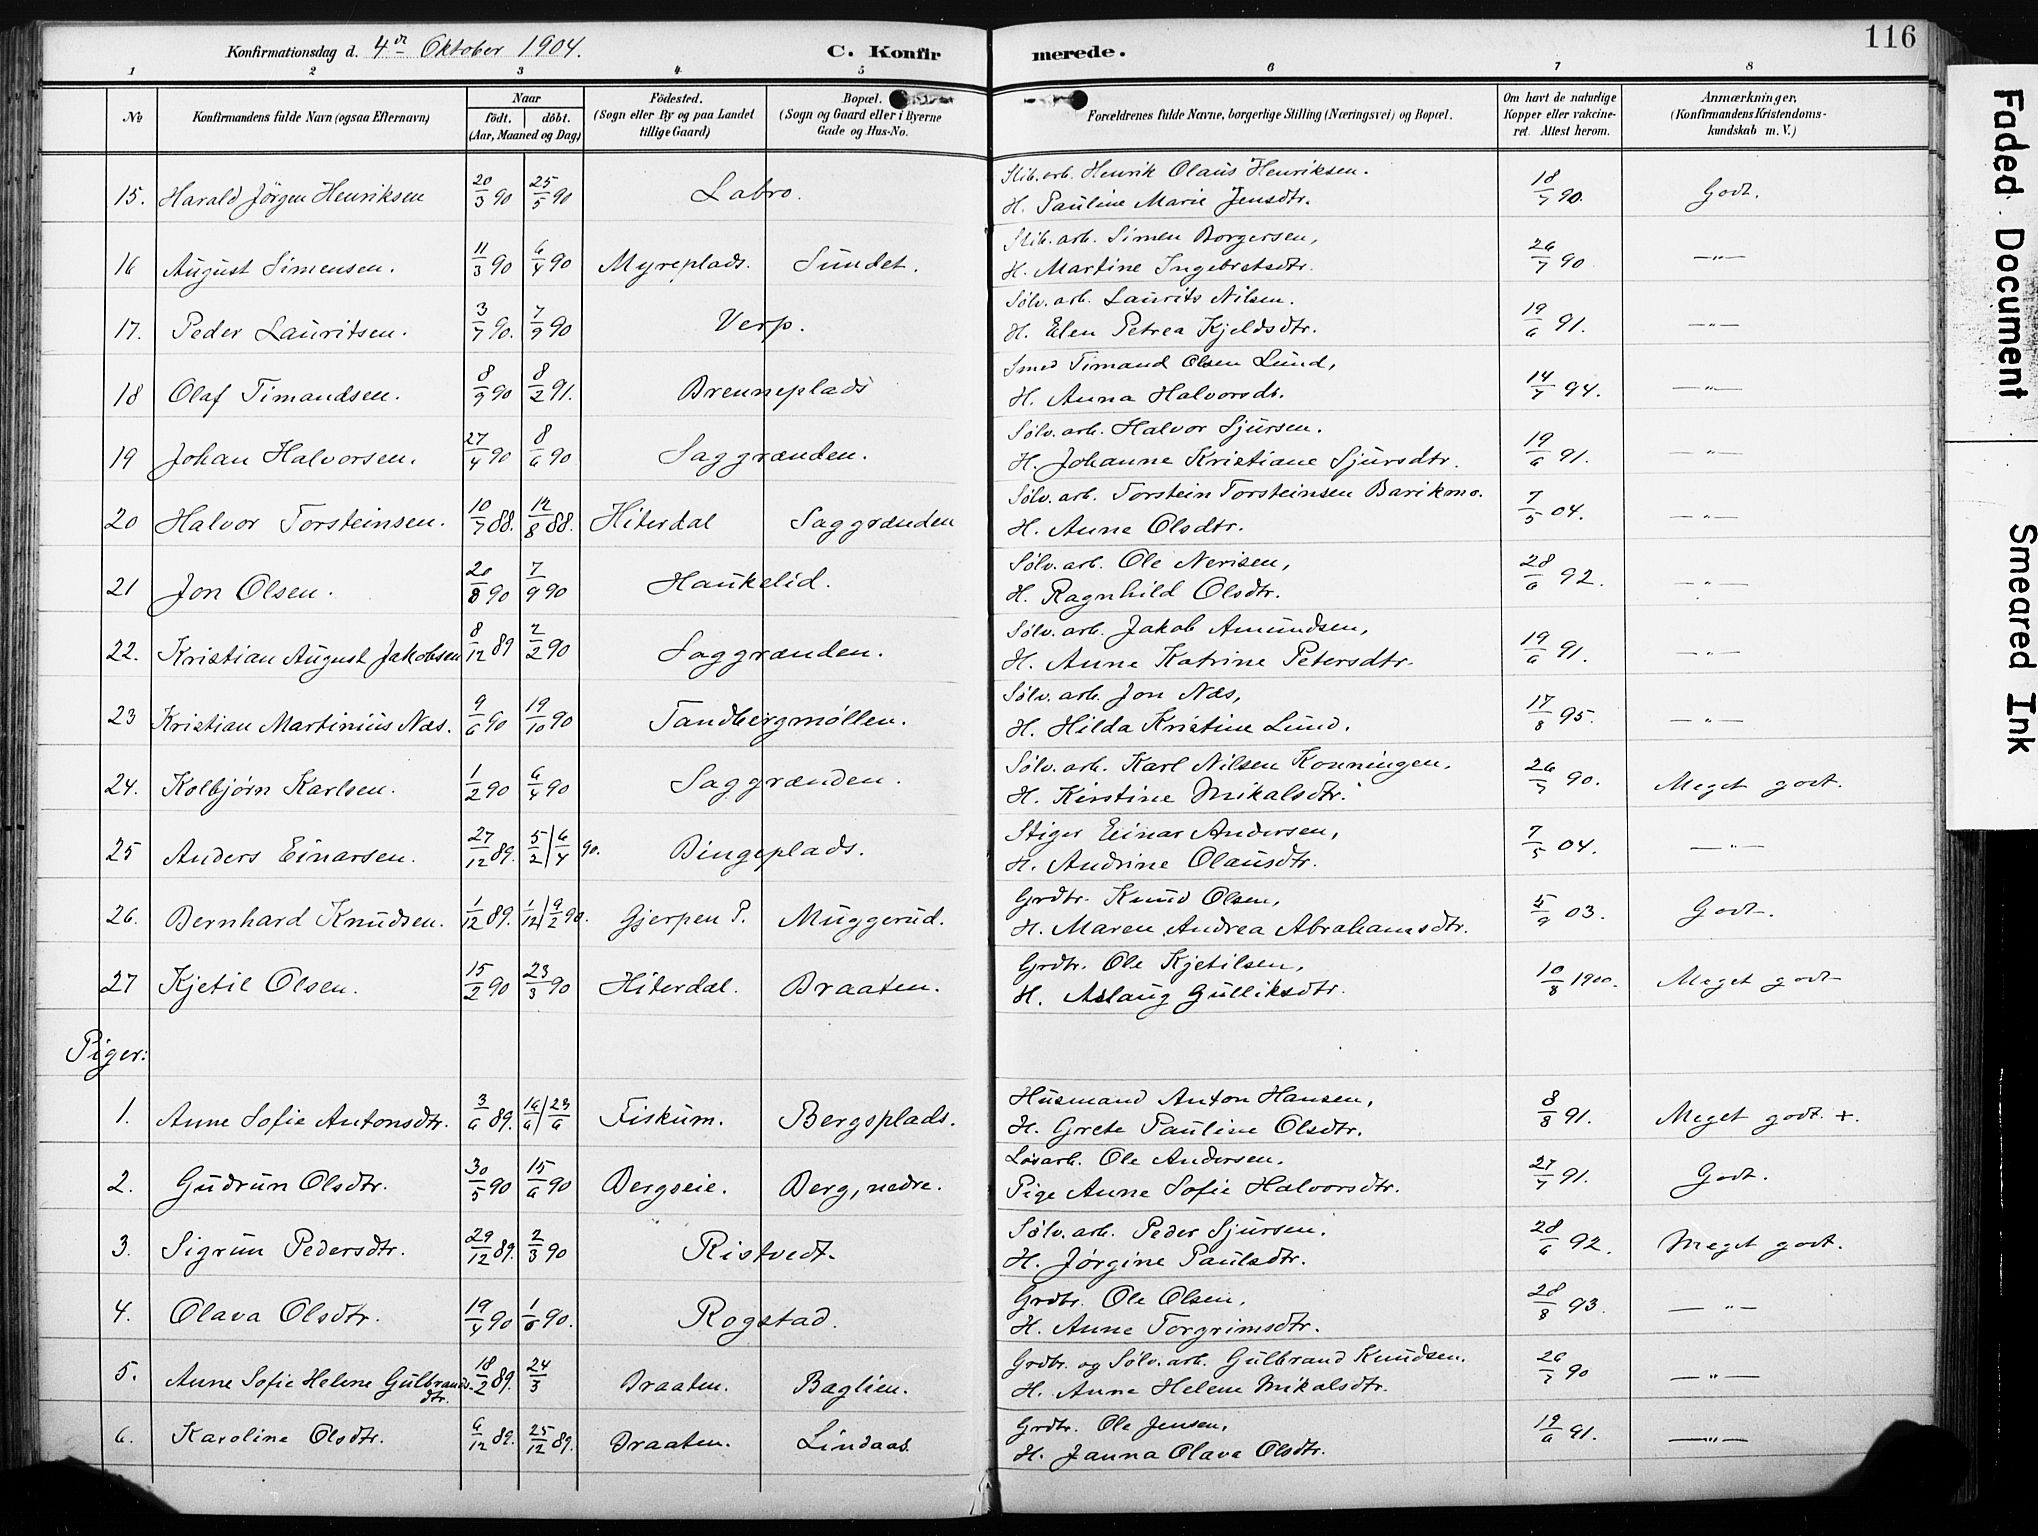 116
Konfirmationsdag d. 4de Oktober 1904. C. Konfirmerede.
1 2 3 4 5 6 7 8
No Konfirmandens fulde Navn (ogsaa Efternavn) Naar født. døbt. (Aar, Maaned og Dag) Födested. (Sogn eller By og paa Landet tillige Gaard) Bopæl. (Sogn og Gaard eller i Byerne Gade og Hus-No. Forældrenes fulde Navne, borgerlige Stilling (Næringsvei) og Bopæl. Om havt de naturlige Kopper eller vakcineret. Attest herom. Anmærkninger, (Konfirmandens Kristendomskundskab m. V.)
15. Harald Jörgen Henriksen 20/3 90 25/5 90 Labro. Slib. arb. Henrik Olaus Henriksen. H. Pauline Marie Jensdtr. 18/7 90. Godt.
16 August Simensen. 11/3 90 6/4 90 Myreplads. Sundet. Slib. arb. Simen Borgersen, H. Martine Ingebretsdtr. 26/7 90 —"—
17. Peder Lauritsen. 3/7 90. 7/9 90 Verp. Sølv. arb. Laurits Nilsen. H. Elen Petrea Kjeldsdtr. 19/6 91. —"—
18 Olaf Timandsen. 8/9 90 8/2 91. Brenneplads Smed Timand Olsen Lund, H. Anna Halvorsdt. 14/7 94. —"—
19 Johan Halvorsen. 27/4 90 8/6 90 Saggrænden. Sølv. arb. Halvor Sjursen. H. Johanne Kristiane Sjursdtr. 19/6 91. —"—
20 Halvor Torsteinsen. 10/7 88. 12/8 88. Hiterdal Saggrænden Sølv. arb. Torstein Torsteinsen Barikmo. H. Anne Olsdtr. 7/5 04. —"—
21 Jon Olsen. 20/8 90 7/9 90 Haukelid. Sølv. arb. Ole Nerisen, H. Ragnhild Olsdtr. 28/6 92. —"—
22. Kristian August Jakobsen 8/12 89 2/2 90 Saggrænden. Sølv. arb. Jakob Amundsen, H. Anne Katrine Petersdtr. 19/6 91. —"—
23 Kristian Martinius Næs. 9/6 90 19/10 90 Tandbergmøllen. Sølv. arb. Jon Næs, H. Hilda Kristine Lund. 17/8 95. —"—
24. Kolbjørn Karlsen. 1/2 90 6/4 90 Saggrænden. Sølv. arb. Karl Nilsen Konningen. H. Kirstine Mikalsdtr. 26/7 90. Meget godt.
25 Anders Einarsen. 27/12 89. 5/2 | 6/4 90. Bingeplads. Stiger Einar Andersen, H. Andrine Olausdtr. 7/5 04. —"—
26. Bernhard Knudsen. 1/12 89. 1/12 | 9/2 90. Gjerpen P. Muggerud. Grdbr. Knud Olsen, H. Maren Andrea Abrahamsdtr. 5/9 03. Godt.
27 Kjetil Olsen. 15/2 90 23/3 90 Hiterdal. Braaten. Grdbr. Ole Kjetilsen, H. Aslaug Gulliksdtr. 10/8 1900. Meget godt
Piger:
1. Anne Sofie Antonsdtr. 3/6 89. 16/6 | 23/6 Fiskum. Bergsplads. Husmand Anton Hansen, H. Grete Pauline Olsdtr. 8/8 91. Meget godt +.
2. Gudrun Olsdtr. 30/5 90 15/6 90 Bergseie. Berg, nedre. Løsarb. Ole Andersen. Pige Anne Sofie Halvorsdtr. 27/7 91. Godt.
3. Sigrun Pedersdtr. 29/12 89. 2/3 90 Ristvedt. Sølv. arb. Peder Sjursen. H. Jørgine Paulsdtr. 28/6 92. Meget godt.
4. Olava Olsdtr. 19/4 90 1/6 90. Rogstad. Grdbr. Ole Olsen, H. Anne Torgrimsdtr. 28/8 93. —"—
5. Anne Sofie Helene Gulbrandsdtr. 18/2 89. 24/3 Braaten. Baglien. Grdbr. og Sølv. arb. Gulbrand Knudsen. H. Anne Helene Mikalsdtr. 26/7 90 —"—
6. Karoline Olsdtr. 6/12 89. 25/12 89. Braaten. Lindaas. Grdbr. Ole Jensen, H. Janna Olava Olsdtr. 19/6 91. —"—
Faded Document
Smeared Ink